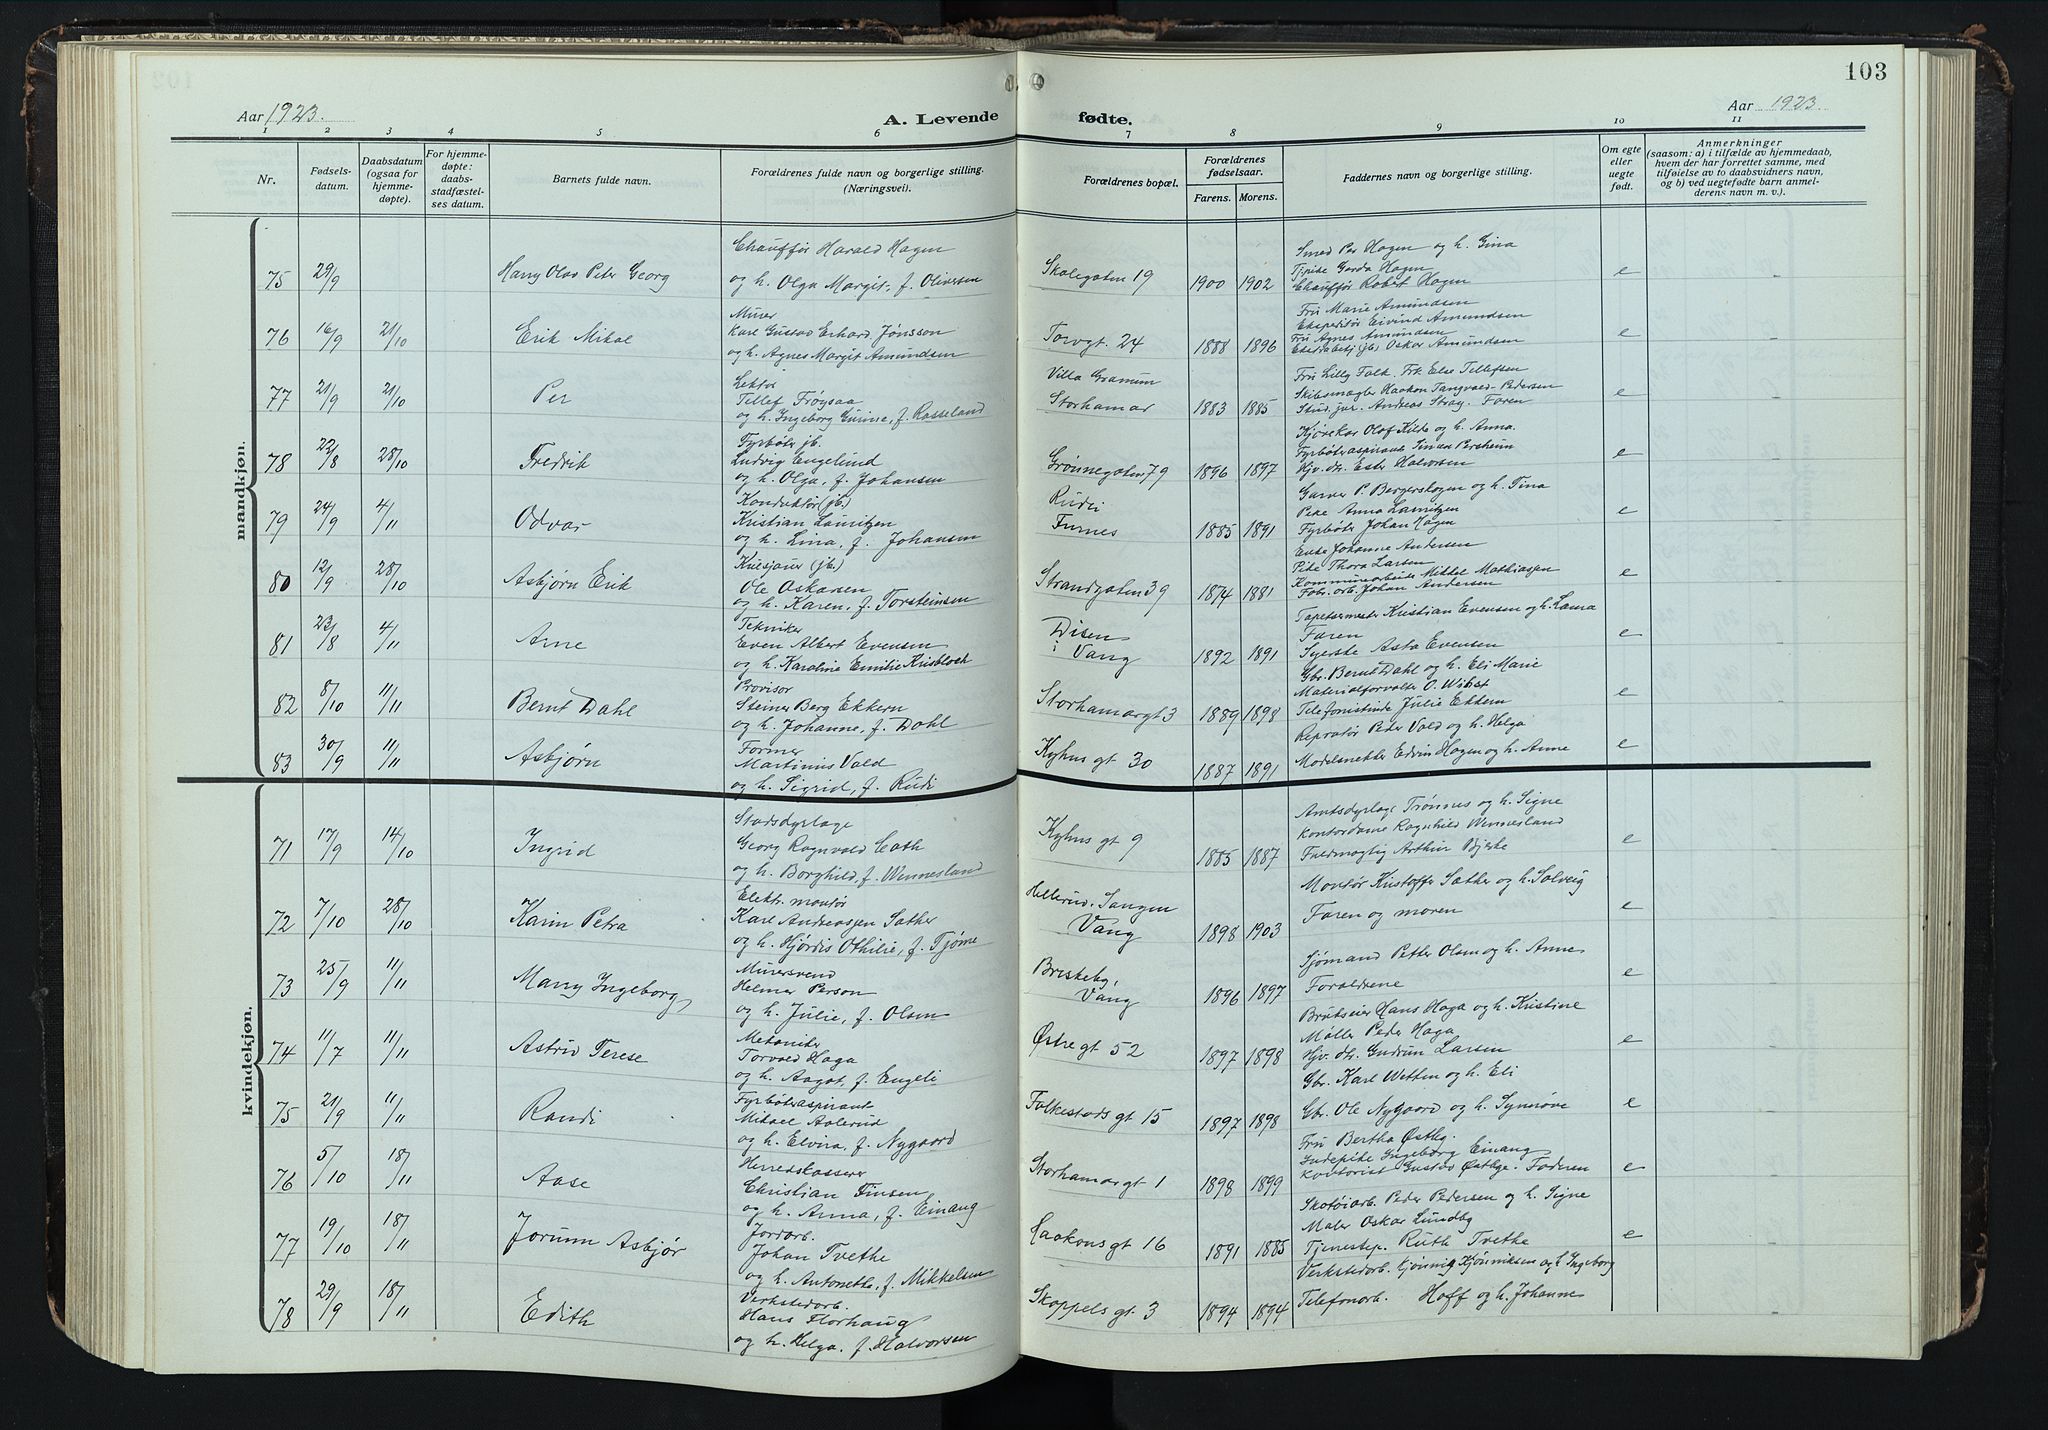 103
Aar 1923.
A. Levende
fødte.
Aar 1923.
1 2 3 4 5 6 7 8 9 10 11
Nr.
Fødsels-
datum.
Daabsdatum
(ogsaa for
hjemme-
døpte).
For hjemme-
døpte:
daabs-
stadfæstel-
ses datum.
Barnets fulde navn.
Forældrenes fulde navn og borgerlige stilling.
(Næringsvei).
Forældrenes bopæl.
Forældrenes
fødselsaar.
Farens. Morens.
Faddernes navn og borgerlige stilling.
Om egte
eller
uegte
født.
Anmerkninger
(saasom: a) i tilfælde av hjemmedaab,
hvem der har forrettet samme, med
tilføielse av to daabsvidners navn,
og b) ved uegtefødte barn anmel-
derens navn m. v.).
mandkjøn.
75 29/9 Harry Olav Peter Georg
Chauffør Harald Hagen
og h. Olga Margit, f. Oliversen
Skolegaten 19 1900 1902
Smed Per Hagen og h. Gina
Tjpike Gerda Hagen
Chauffør Robert Hagen
e
76 16/9 21/10 Erik Mikal
Murer
Karl Gustav Erhard Jønsson
og h. Agnes Margit Amundsen
Torvgt. 24 1888 1896
Fru Marie Amundsen
Ekspeditør Eivind Amundsen
Fru Agnes Amundsen
Oskar Amundsen
e
77 21/9 21/10 Per
Lektor
Tellef Frøysaa
og h. Ingeborg Gurine, f. Rosseland
Villa Granum
Storhamar 1883 1885
Fru Lilly Falk. Frk. Else Tellefsen
Skibsmægler Haakon Tangvald-Pedersen
Stud. jur. Andreas Stray. Faren
e
78 22/8 28/10 Fredrik
Fyrbøter jb.
Ludvig Engelund
og h. Olga, f. Johansen
Grønnegaten 79 1896 1897
Kjørekar Olaf Kilde og h. Anna.
Fyrbøteraspirant
Hjv. dtr. Ester Halvorsen
e
79 24/9 4/11 Odvar
Konduktør (jb.)
Kristian Lauritzen
og h. Lina, f. Johansen
Rudi
Furnes 1885 1891
Garver P. Bergerskogen og h. Tina
Pike Anna Lauritzen
Fyrbøter Johan Hagen
e
80 12/9 28/10 Asbjørn Erik
(jb.)
Ole Oskarsen
og h. Karen, f. Torsteinsen
Strandgaten 39 1874 1881
Enke Johanne Andersen
Pike Thora Larsen
Kommunearbeider Mathiassen
Fabr. arb. Johan Andersen
e
81 23/8 4/11 Arne
Tekniker
Even Albert Evensen
og h. Karoline Emilie
Disen
i Vang 1892 1891
Tapetsermester Kristian Evensen og h. Laura
Faren
Syerske Asta Evensen
e
82 8/10 11/11 Bernt Dahl
Provisor
Steiner Berg Ekkern
og h. Johanne, f. Dahl
Storhamargt 3 1889 1898
Gbr. Bernt Dahl og h. Eli Marie
Materialforvalter O.
Telefonistinde Julie Ekkern
e
83 30/9 11/11 Asbjørn
Former
Martinius Vold
og h. Sigrid, f. Rudi
Kyhns gt 30 1887 1891
Reparatør Peder Vold og h. Helga
Modelsnekker Edvin Hagen og h. Anne
e
kvindekjøn.
71 17/9 14/10 Ingrid
Stadsdyrlæge
Georg Ragnvald
og h. Borghild, f. Wennesland
Kyhns gt 9 1885 1887
Amtsdyrlæge Trønnes og h. Signe
Kontordame Ragnhild Wennesland
Fuldmægtig Arthur Bjerke
e
72 7/10 28/10 Karin Petra
Elektr. montør
Karl Andreassen Sæther
og h. Hjørdis Othilie, f. Tjøme
Hellerud,
Vang 1898 1903
Montør Kristoffer Sæther og h. Solveig
Faren og moren
e
73 25/9 11/11 Marry Ingeborg
Murersvend
Helmer Person
og h. Julie, f. Olsen
Briskeby,
Vang 1896 1897
Sjømand Petter Olsen og h. Anne
Forældrene
e
74 11/7 11/11 Astrid Terese
Mekaniker
Torvald Haga
og h. Aagot, f. Engeli
Østregt 52 1897 1898
Bruksier Hans Haga og h. Kristine
Møller Peder Haga
Hjv. dtr. Gudrun Larsen
e
75 21/9 11/11 Randi
Fyrbøteraspirant
Mikael
og h. Elvira, f. Nygaard
Folkestads gt 15 1897 1898
Gbr. Karl Wetten og h. Eli
Gbr. Ole Nygaard og h. Synnøve
e
76 5/10 18/11 Aase
Herredskasserer
Christian Finsen
og h. Anna, f. Einang
Storhamargt 1 1898 1899
Fru Bertha Østby.
Ingeborg Einang
Kontorist Gustav Østbye. Faderen
e
77 19/10 18/11 Jorunn Asbjør
Jordarb.
Johan Tvethe
og h. Antonette, f. Mikkelsen
Haakons gt 16 1891 1885
Skotøiarb. Peder Pedersen og h. Signe
Maler Oskar Lundby
Tjenestep. Ruth Tvethe
e
78 29/9 18/11 Edith
Verkstedarb.
Hans Florhaug
og h. Helga, f. Halvorsen
Skappels gt. 3 1894 1894
Verkstedarb. og h. Ingeborg
Telefonarb. Hoff og h. Johanne
e